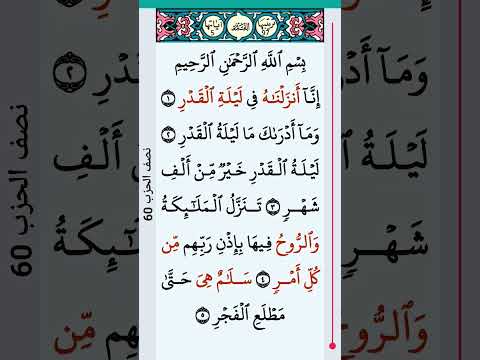 بِسْمِ ٱللَّهِ ٱلرَّحْمَٰنِ ٱلرَّحِيمِ
إِنَّآ أَنزَلْنَٰهُ فِى لَيْلَةِ ٱلْقَدْرِ ١
وَمَآ أَدْرَىٰكَ مَا لَيْلَةُ ٱلْقَدْرِ ٢
لَيْلَةُ ٱلْقَدْرِ خَيْرٌ مِّنْ أَلْفِ
شَهْرٍ ٣ تَنَزَّلُ ٱلْمَلَٰٓئِكَةُ
وَٱلرُّوحُ فِيهَا بِإِذْنِ رَبِّهِم مِّن
كُلِّ أَمْرٍ ٤ سَلَٰمٌ هِىَ حَتَّىٰ
مَطْلَعِ ٱلْفَجْرِ ٥
نصف الحزب 60